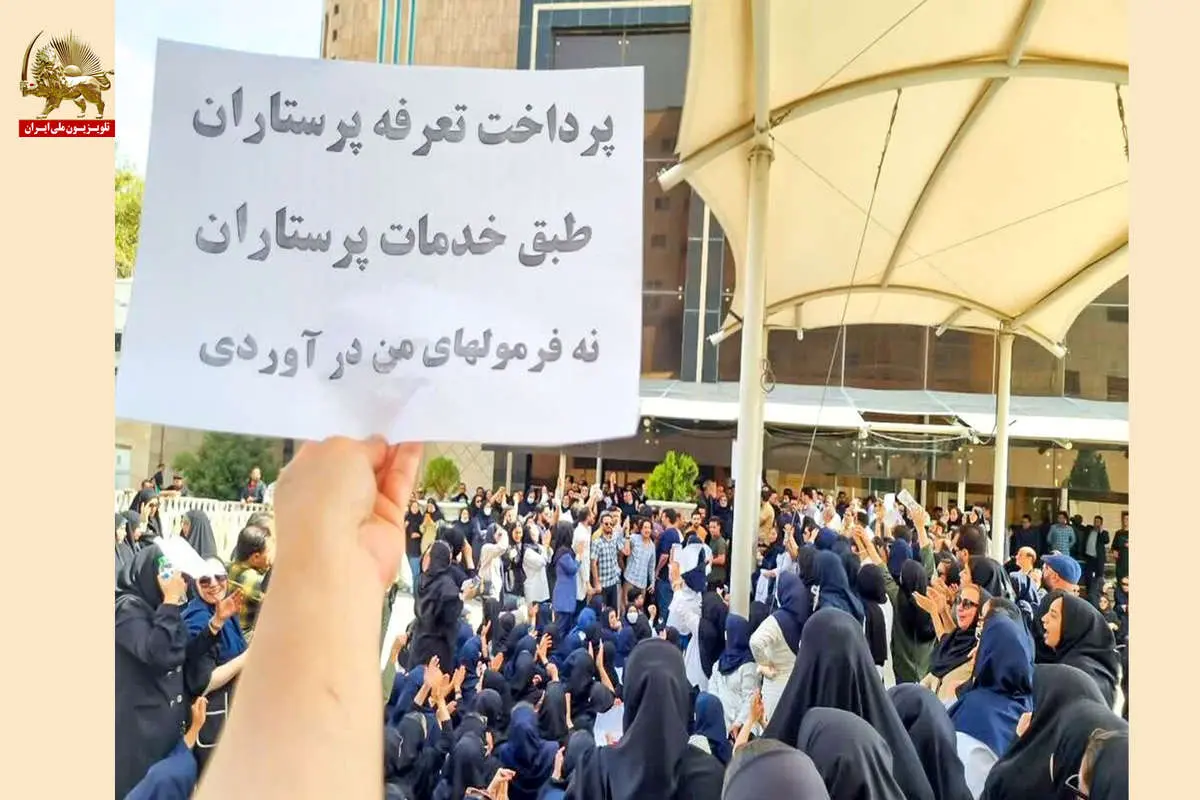 تلویزیون ملی ایران
پرداخت تعرفه پرستاران
طبق خدمات پرستاران
نه فرمولهای من در آوردی